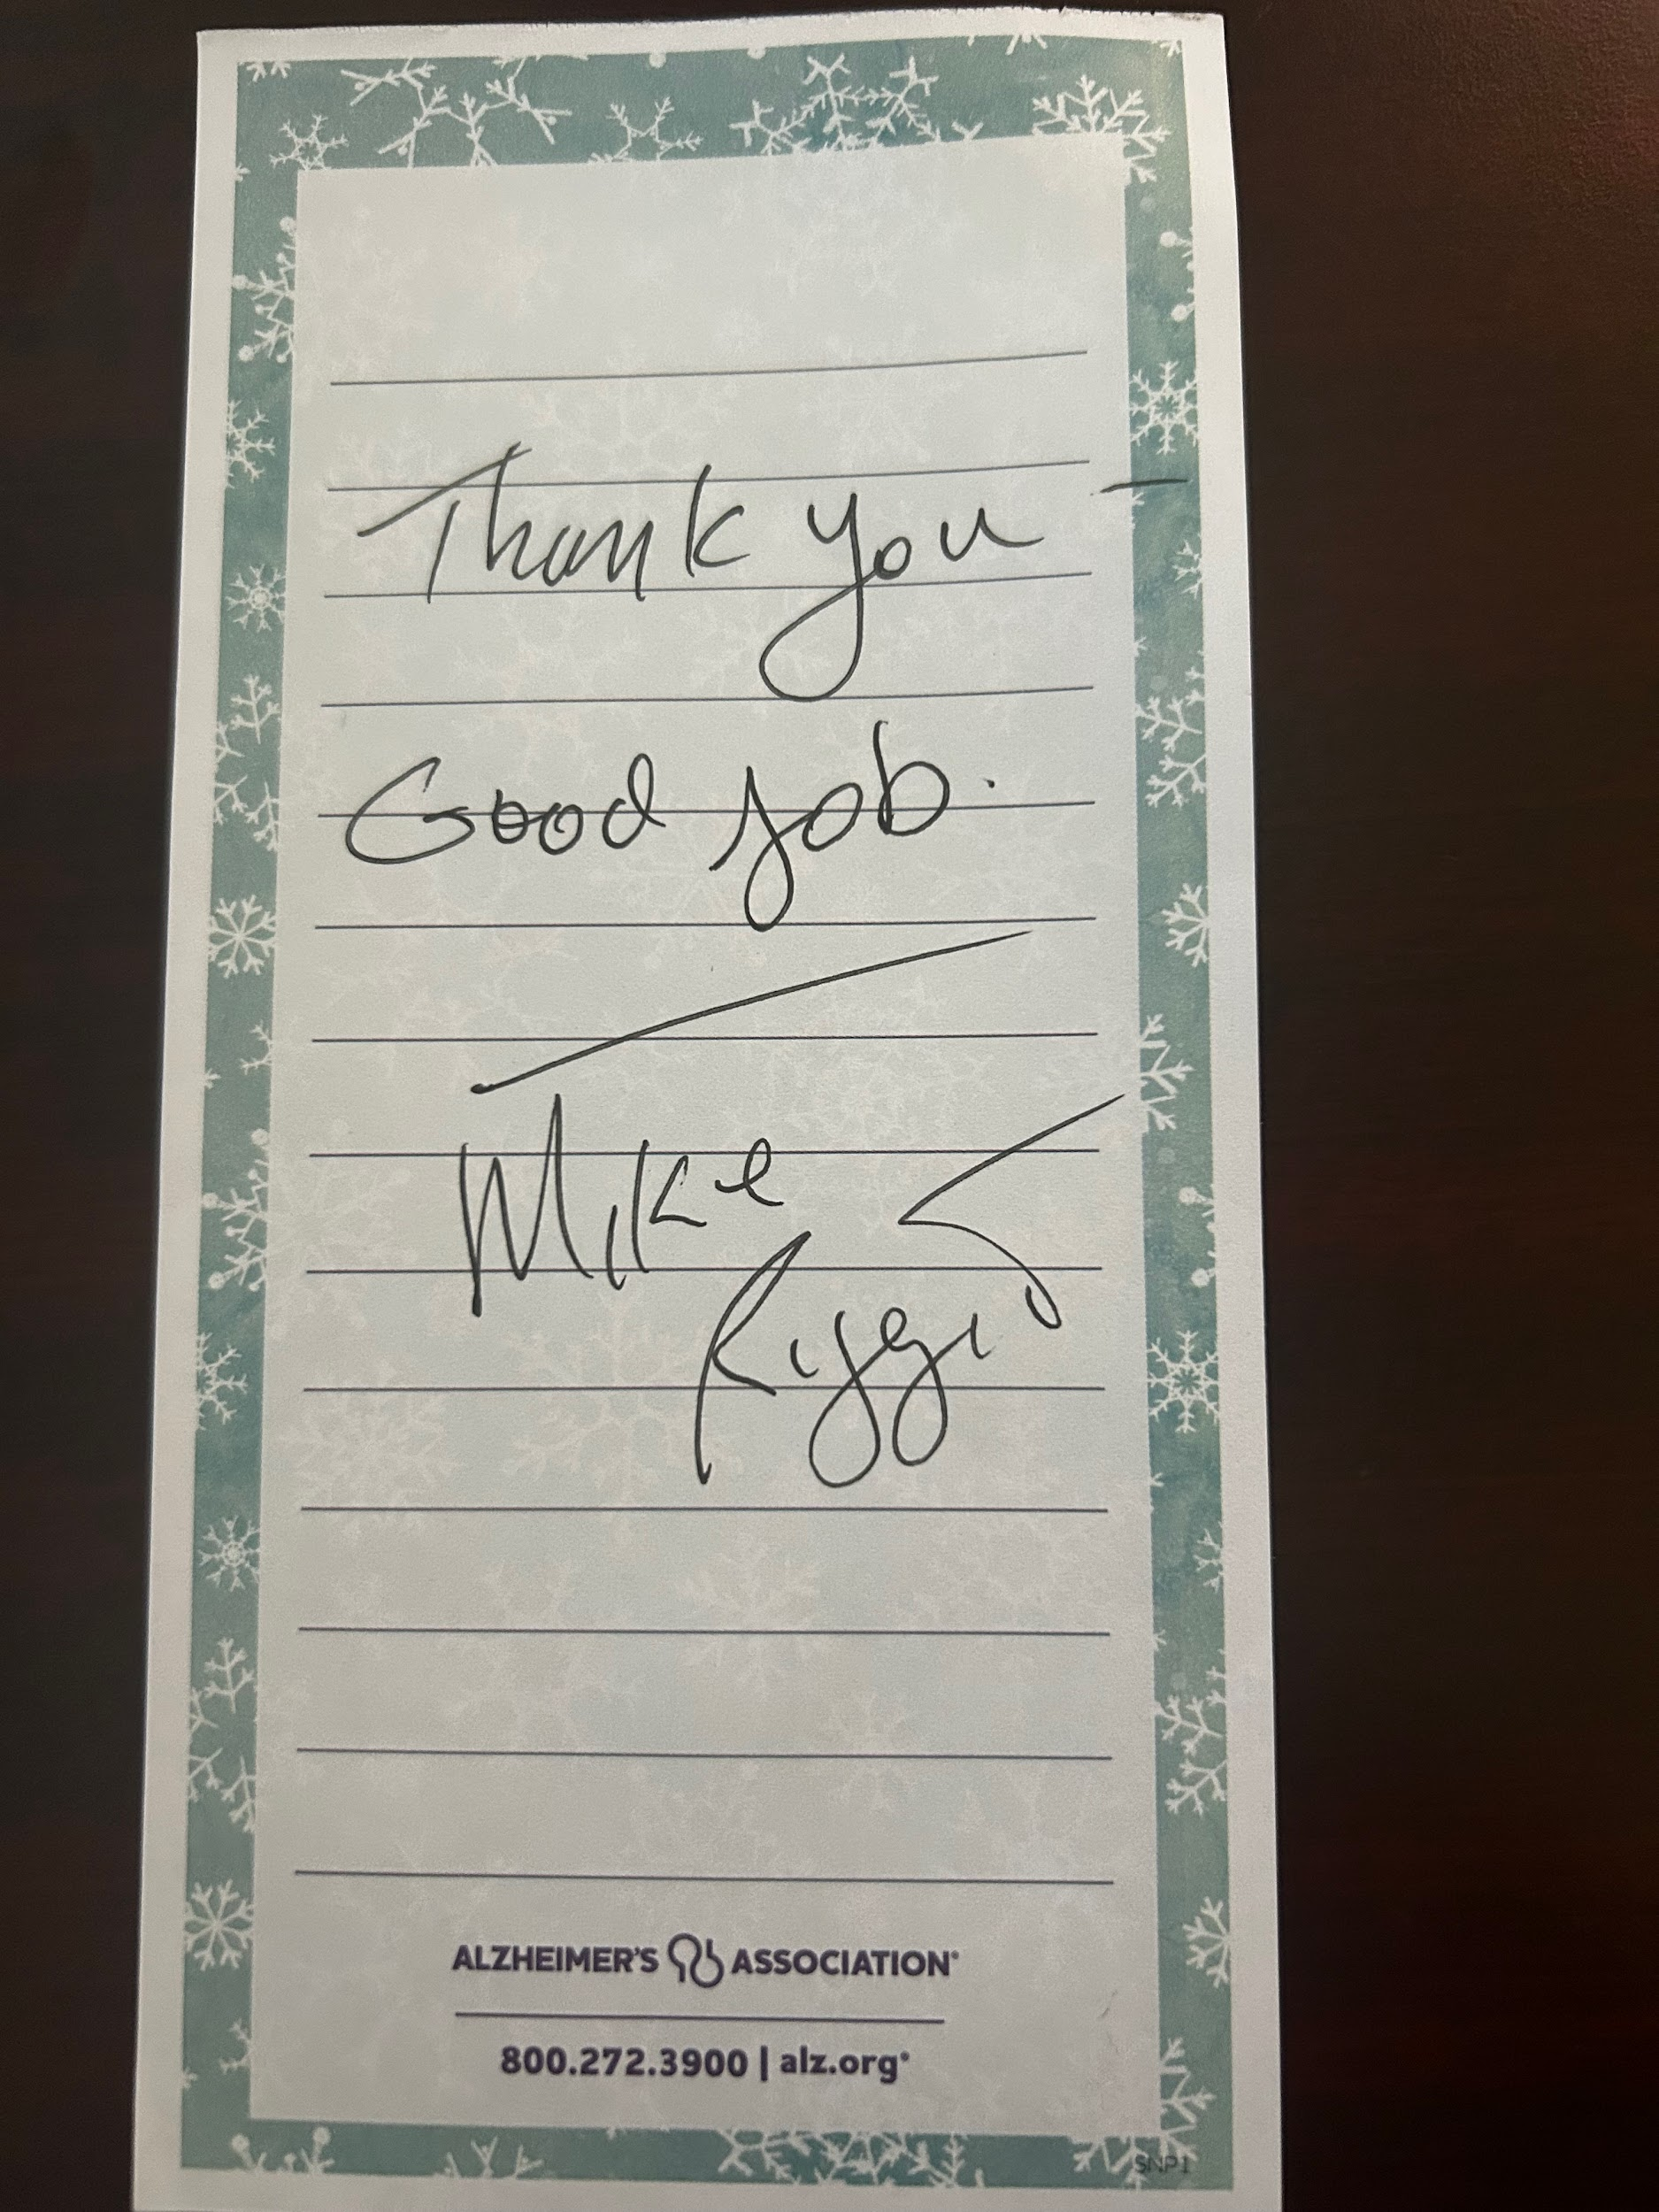 Thank you -
Good job.
Mike
Riggio
ALZHEIMER'S ASSOCIATION®
800.272.3900 | alz.org®
SNP1